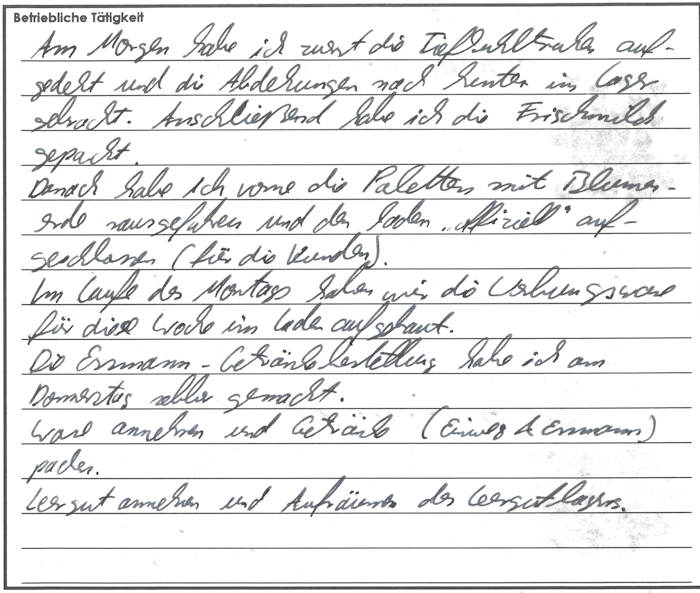 Betriebliche Tätigkeit
Am Morgen habe ich zuerst die Tiefkühltruhen auf-
gedeckt und die Abdeckungen nach hinten im Lager
gebracht. Anschließend habe ich die Frischmilch
gepackt.
Danach habe ich vorne die Paletten mit Blumen-
erde rausgefahren und den Laden "offiziell" auf-
geschlossen (für die Kunden).
Im Laufe des Montags haben wir die Werbungsware
für diese Woche im Laden aufgebaut.
Die Ensmann-Getränkebestellung habe ich am
Donnerstag selber gemacht.
Ware annehmen und Getränke (Einweg & Ensmann)
packen.
Leergut annehmen und Aufräumen des Leergutlagers.